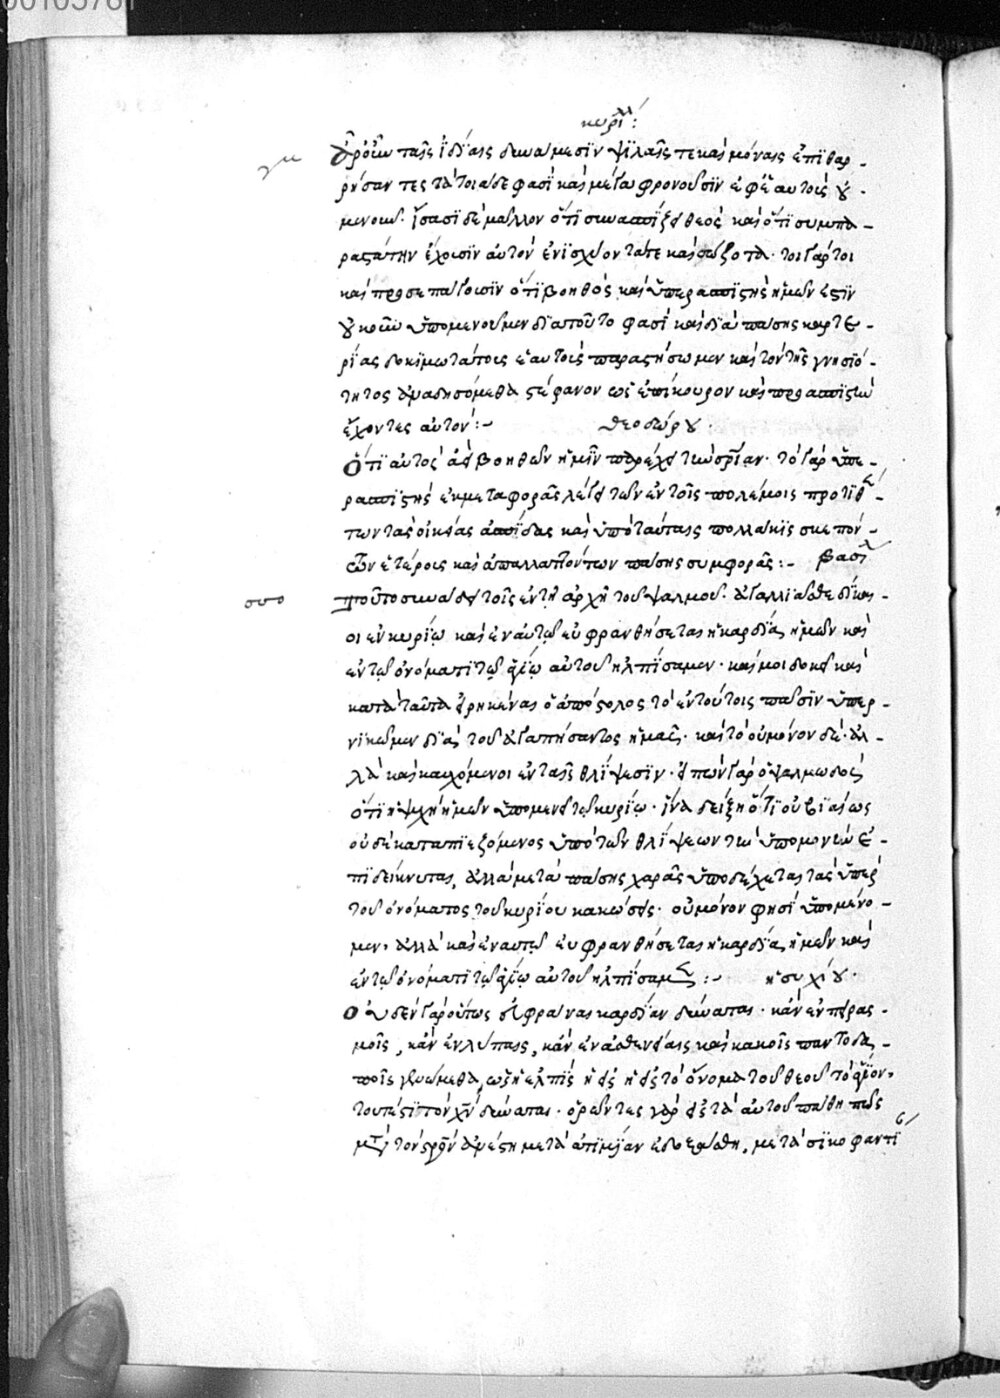 00105781
κυρίλλ :
Οὐχ οἷον ταῖς ἰδίαις δυνάμεσιν ψιλαῖς τε καὶ μόναις ἐπιθαρ-
ρήσαντες τὰ τοιάδε φασὶ καὶ μέγα φρονοῦσιν ἐφ' ἑαυτοῖς
μενουν. ἴσασι δὲ μᾶλλον ὅτι συνασπίζει θεὸς καὶ ὅτι συμπα-
ραστάτην ἔχουσιν αὐτὸν ἐνισχύοντά τε καὶ σώζοντα. τοιγάρτοι
καὶ προσεπάγουσιν ὅτι βοηθὸς καὶ ὑπερασπιστὴς ἡμῶν ἐστιν
οὐκοῦν ὑπομενοῦμεν διατοῦτο φασὶ καὶ διὰ πάσης καρτε-
ρίας δοκιμωτάτους ἑαυτοὺς παραστήσωμεν καὶ τὸν τῆς γνησιό-
τητος ἀναδησόμεθα στέφανον ὡς ἐπίκουρον καὶ προασπιστὴν
ἔχοντες αὐτόν :- θεοδώρου
Ὅτι αὐτὸς ἀεὶ βοηθῶν ἡμῖν παρέχει τὴν σρίαν. τὸ γὰρ ὑπε-
ρασπιστὴς ἐκ μεταφορᾶς λέγει τῶν ἐν τοῖς πολέμοις προτιθέ-
των τὰς οἰκείας ἀσπίδας καὶ ὑπὸ ταύταις πολλάκις σκεπόν-
των ἑτέροις καὶ ἀπαλλαττόντων πάσης συμφορᾶς :- βασιλ
Τοῦτο συνάδει τοῖς ἐν τῇ ἀρχῇ τοῦ ψαλμοῦ. ἀγαλλιᾶσθε δίκαι-
οι ἐν κυρίῳ καὶ ἐν αὐτῷ εὐφρανθήσεται ἡ καρδία ἡμῶν καὶ
ἐν τῷ ὀνόματι τῷ ἁγίῳ αὐτοῦ ἠλπίσαμεν. καί μοι δοκεῖ καὶ
κατὰ ταῦτα εἰρηκέναι ὁ ἀπόστολος τὸ ἐν τούτοις πᾶσιν ὑπερ-
νικῶμεν διὰ τοῦ ἀγαπήσαντος ἡμᾶς. καὶ τὸ οὐ μόνον δὲ. ἀλ-
λὰ καὶ καυχόμενοι ἐν ταῖς θλίψεσιν. εἰπὼν γὰρ ὁ ψαλμωδὸς
ὅτι ἡ ψυχὴ ἡμῶν ὑπομένει τῷ κυρίῳ. ἵνα δείξῃ ὅτι οὐ βιαίως
οὐδὲ καταπιεζόμενος ὑπὸ τῶν θλίψεων τὴν ὑπομονὴν ἐ-
πιδείκνυται, ἀλλὰ μετὰ πάσης χαρᾶς ὑποδέχεται τὰς ὑπὲρ
τοῦ ὀνόματος τοῦ κυρίου κακώσεις. οὐ μόνον φησὶ ὑπομένο-
μεν, ἀλλὰ καὶ ἐν αὐτῷ εὐφρανθήσεται ἡ καρδία ἡμῶν καὶ
ἐν τῷ ὀνόματι τῷ ἁγίῳ αὐτοῦ ἠλπίσαμεν :- ἡσυχίου.
Οὐδὲν γὰρ οὕτως εὐφρᾶναι καρδίαν δύναται. κἂν ἐν πειρας-
μοῖς, κἂν ἐν λύπαις, κἂν ἐν ἀσθενείαις καὶ κακοῖς παντοδα-
ποῖς γενώμεθα, ὡς ἡ ἐλπὶς ἡ εἰς τὸ ὄνομα τοῦ θεοῦ τὸ ἅγιον,
τουτέστι τὸν χν δύναται. ὁρῶντες γὰρ εἰς τὰ αὐτοῦ πάθη πῶς
μετὰ τὸν σρον ἀνέστη μετὰ ἀτιμίαν ἐδοξάσθη, μετὰ συκοφαντί